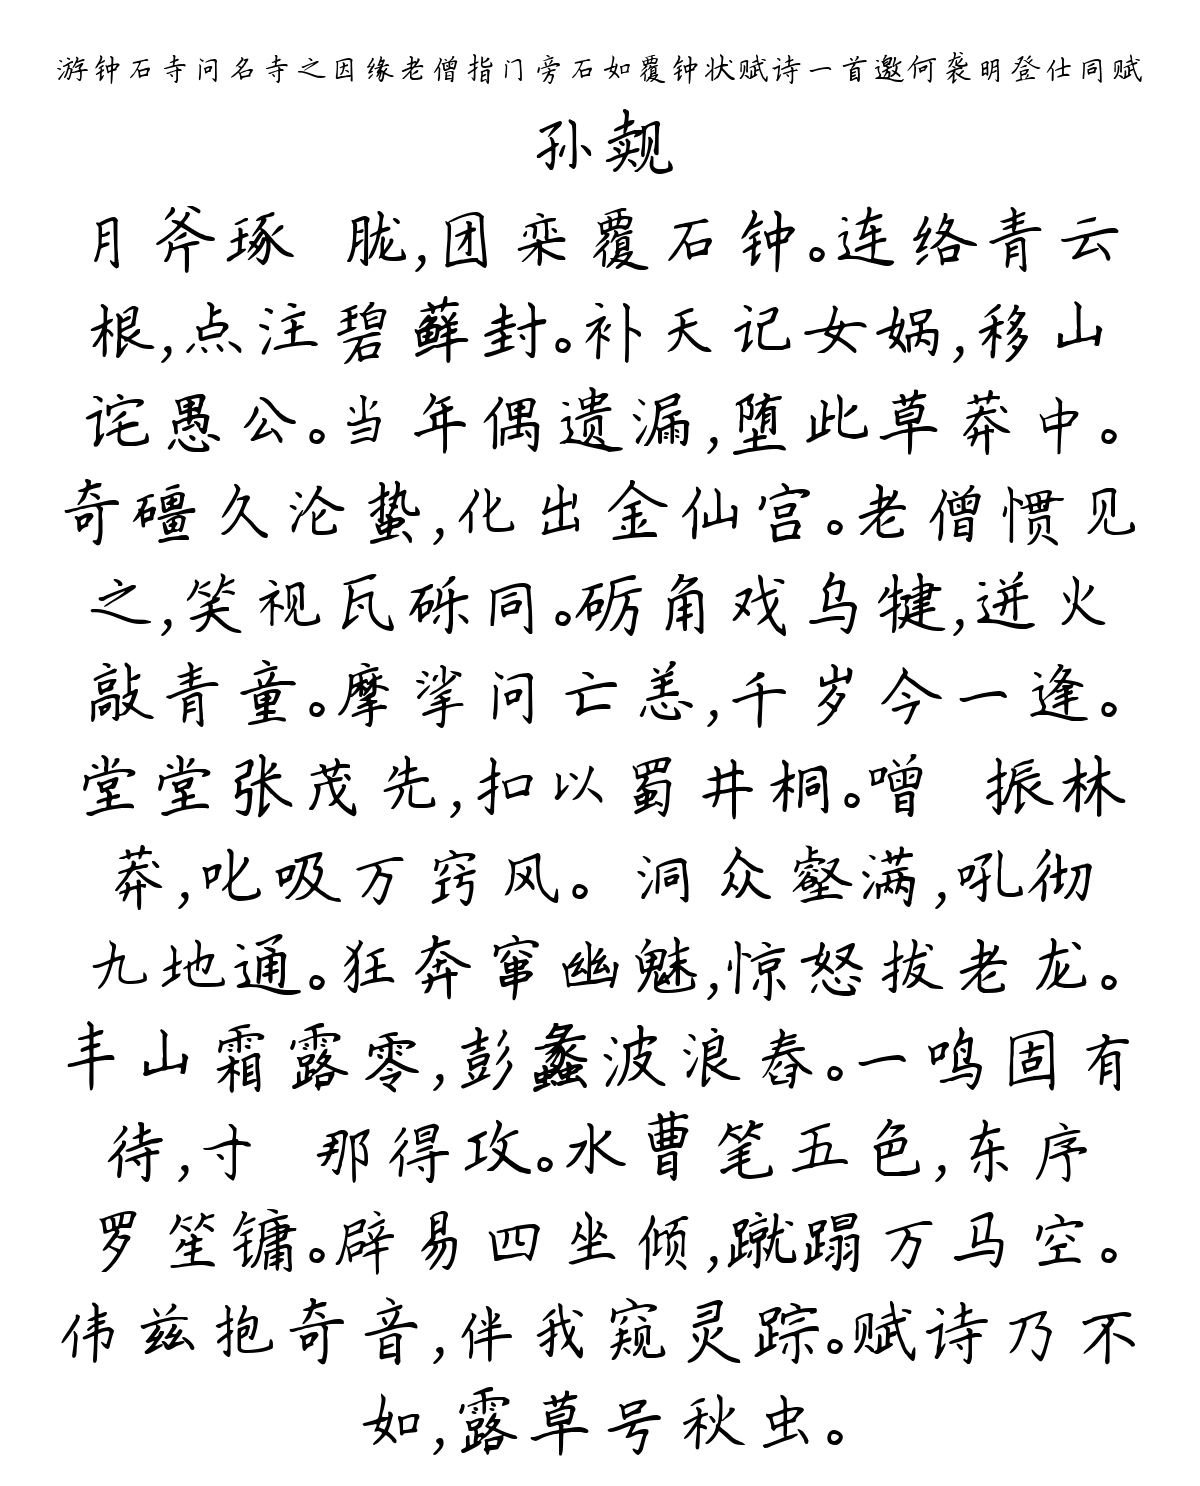 游钟石寺问名寺之因缘老僧指门旁石如覆钟状赋诗一首邀何袭明登仕同赋
孙觌
月斧琢 胧,团栾覆石钟。连络青云
根,点注碧藓封。补天记女娲,移山
诧愚公。当年偶遗漏,堕此草莽中。
奇礓久沦蛰,化出金仙宫。老僧惯见
之,笑视瓦砾同。砺角戏乌犍,迸火
敲青童。摩挲问亡恙,千岁今一逢。
堂堂张茂先,扣以蜀井桐。噌 振林
莽,叱吸万窍风。 洞众壑满,吼彻
九地通。狂奔窜幽魅,惊怒拔老龙。
丰山霜露零,彭蠡波浪舂。一鸣固有
待,寸 那得攻。水曹笔五色,东序
罗笙镛。辟易四坐倾,蹴蹋万马空。
伟兹抱奇音,伴我窥灵踪。赋诗乃不
如,露草号秋虫。